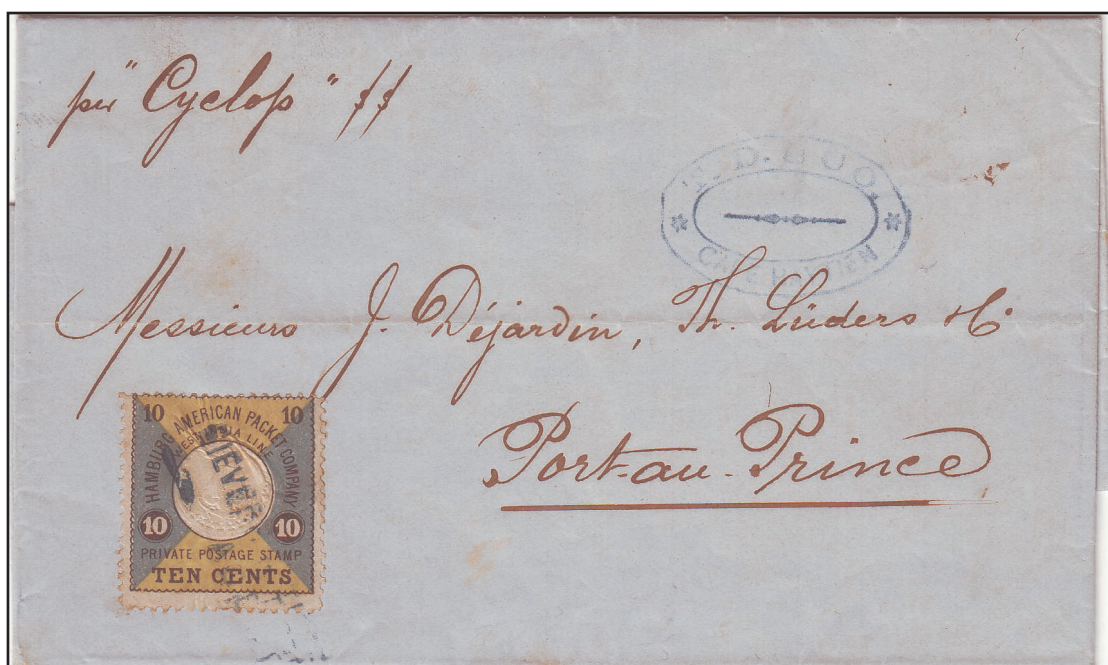 per "Cyclop"
CAPE HAYTIEN
Messieurs J. Déjardin, Th. Lüders & Cº
Port-au-Prince
10 10
HAMBURG AMERICAN PACKET COMPANY
WEST INDIA LINE
10 10
PRIVATE POSTAGE STAMP
TEN CENTS